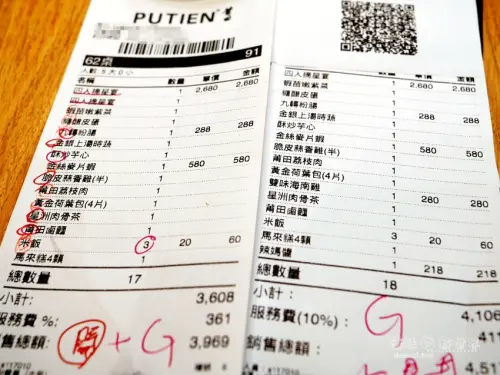 PUTIEN
62桌 91
人數:5大0小
名稱 數量 單價 金額
四人攜星宴 1 2,680 2,680
四人攜星宴 1
蝦苗嫩紫菜 1
爐釀皮蛋 1
九轉粉腸 1 288 288
金銀上湯時蔬 1
酥炒芋心 1
金絲麥片蝦 1 580 580
脆皮絲香雞(半) 1
莆田荔枝肉 1
黃金荷葉包(4片) 1
星洲肉骨茶 1
莆田鹵麵 1
米飯 3 20 60
馬來糕4顆 1
總數量 17
小計: 3,608
服務費 %: 361
銷售總額: 3,969
開 + G
#117010
數量 單價 金額
四人攜星宴 1 2,680 2,680
蝦苗嫩紫菜 1
皮蛋 1
九轉粉腸 1 288 288
金銀上湯時蔬 1
酥炒芋心 1
金絲麥片蝦 1 580 580
脆皮絲香雞(半) 1
莆田荔枝肉 1
黃金荷葉包(4片) 1
雙味海南雞 1
星洲肉骨茶 1 280 280
莆田鹵麵 1
米飯 3 20 60
馬來糕4顆 1
辣媽醬 1 218 218
總數量 18
小計: 4,106
服務費(10%): 411
銷售總額: 4,517
G
#117010